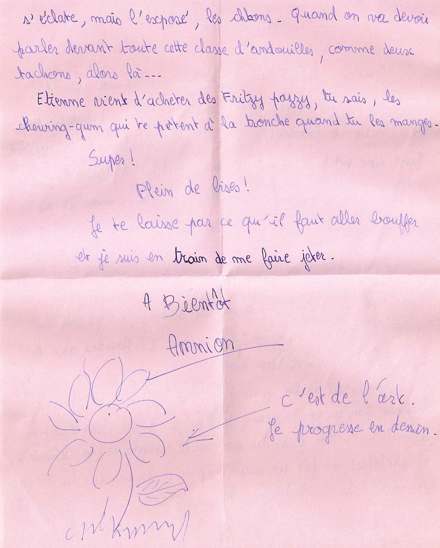 s'éclate, mais l'exposé, les dibons. Quand on va devoir
parler devant toute cette classe d'andouilles, comme deux
tachons, alors là...
Etienne vient d'acheter des Fritzy pazzy, tu sais, les
chewing-gum qui te pètent à la tronche quand tu les manges.
Super!
Plein de bises!
Je te laisse par ce qu'il faut aller bouffer
et je suis en train de me faire jeter.
A Bientôt
Amnion
c'est de l'art.
Je progresse en dessin.